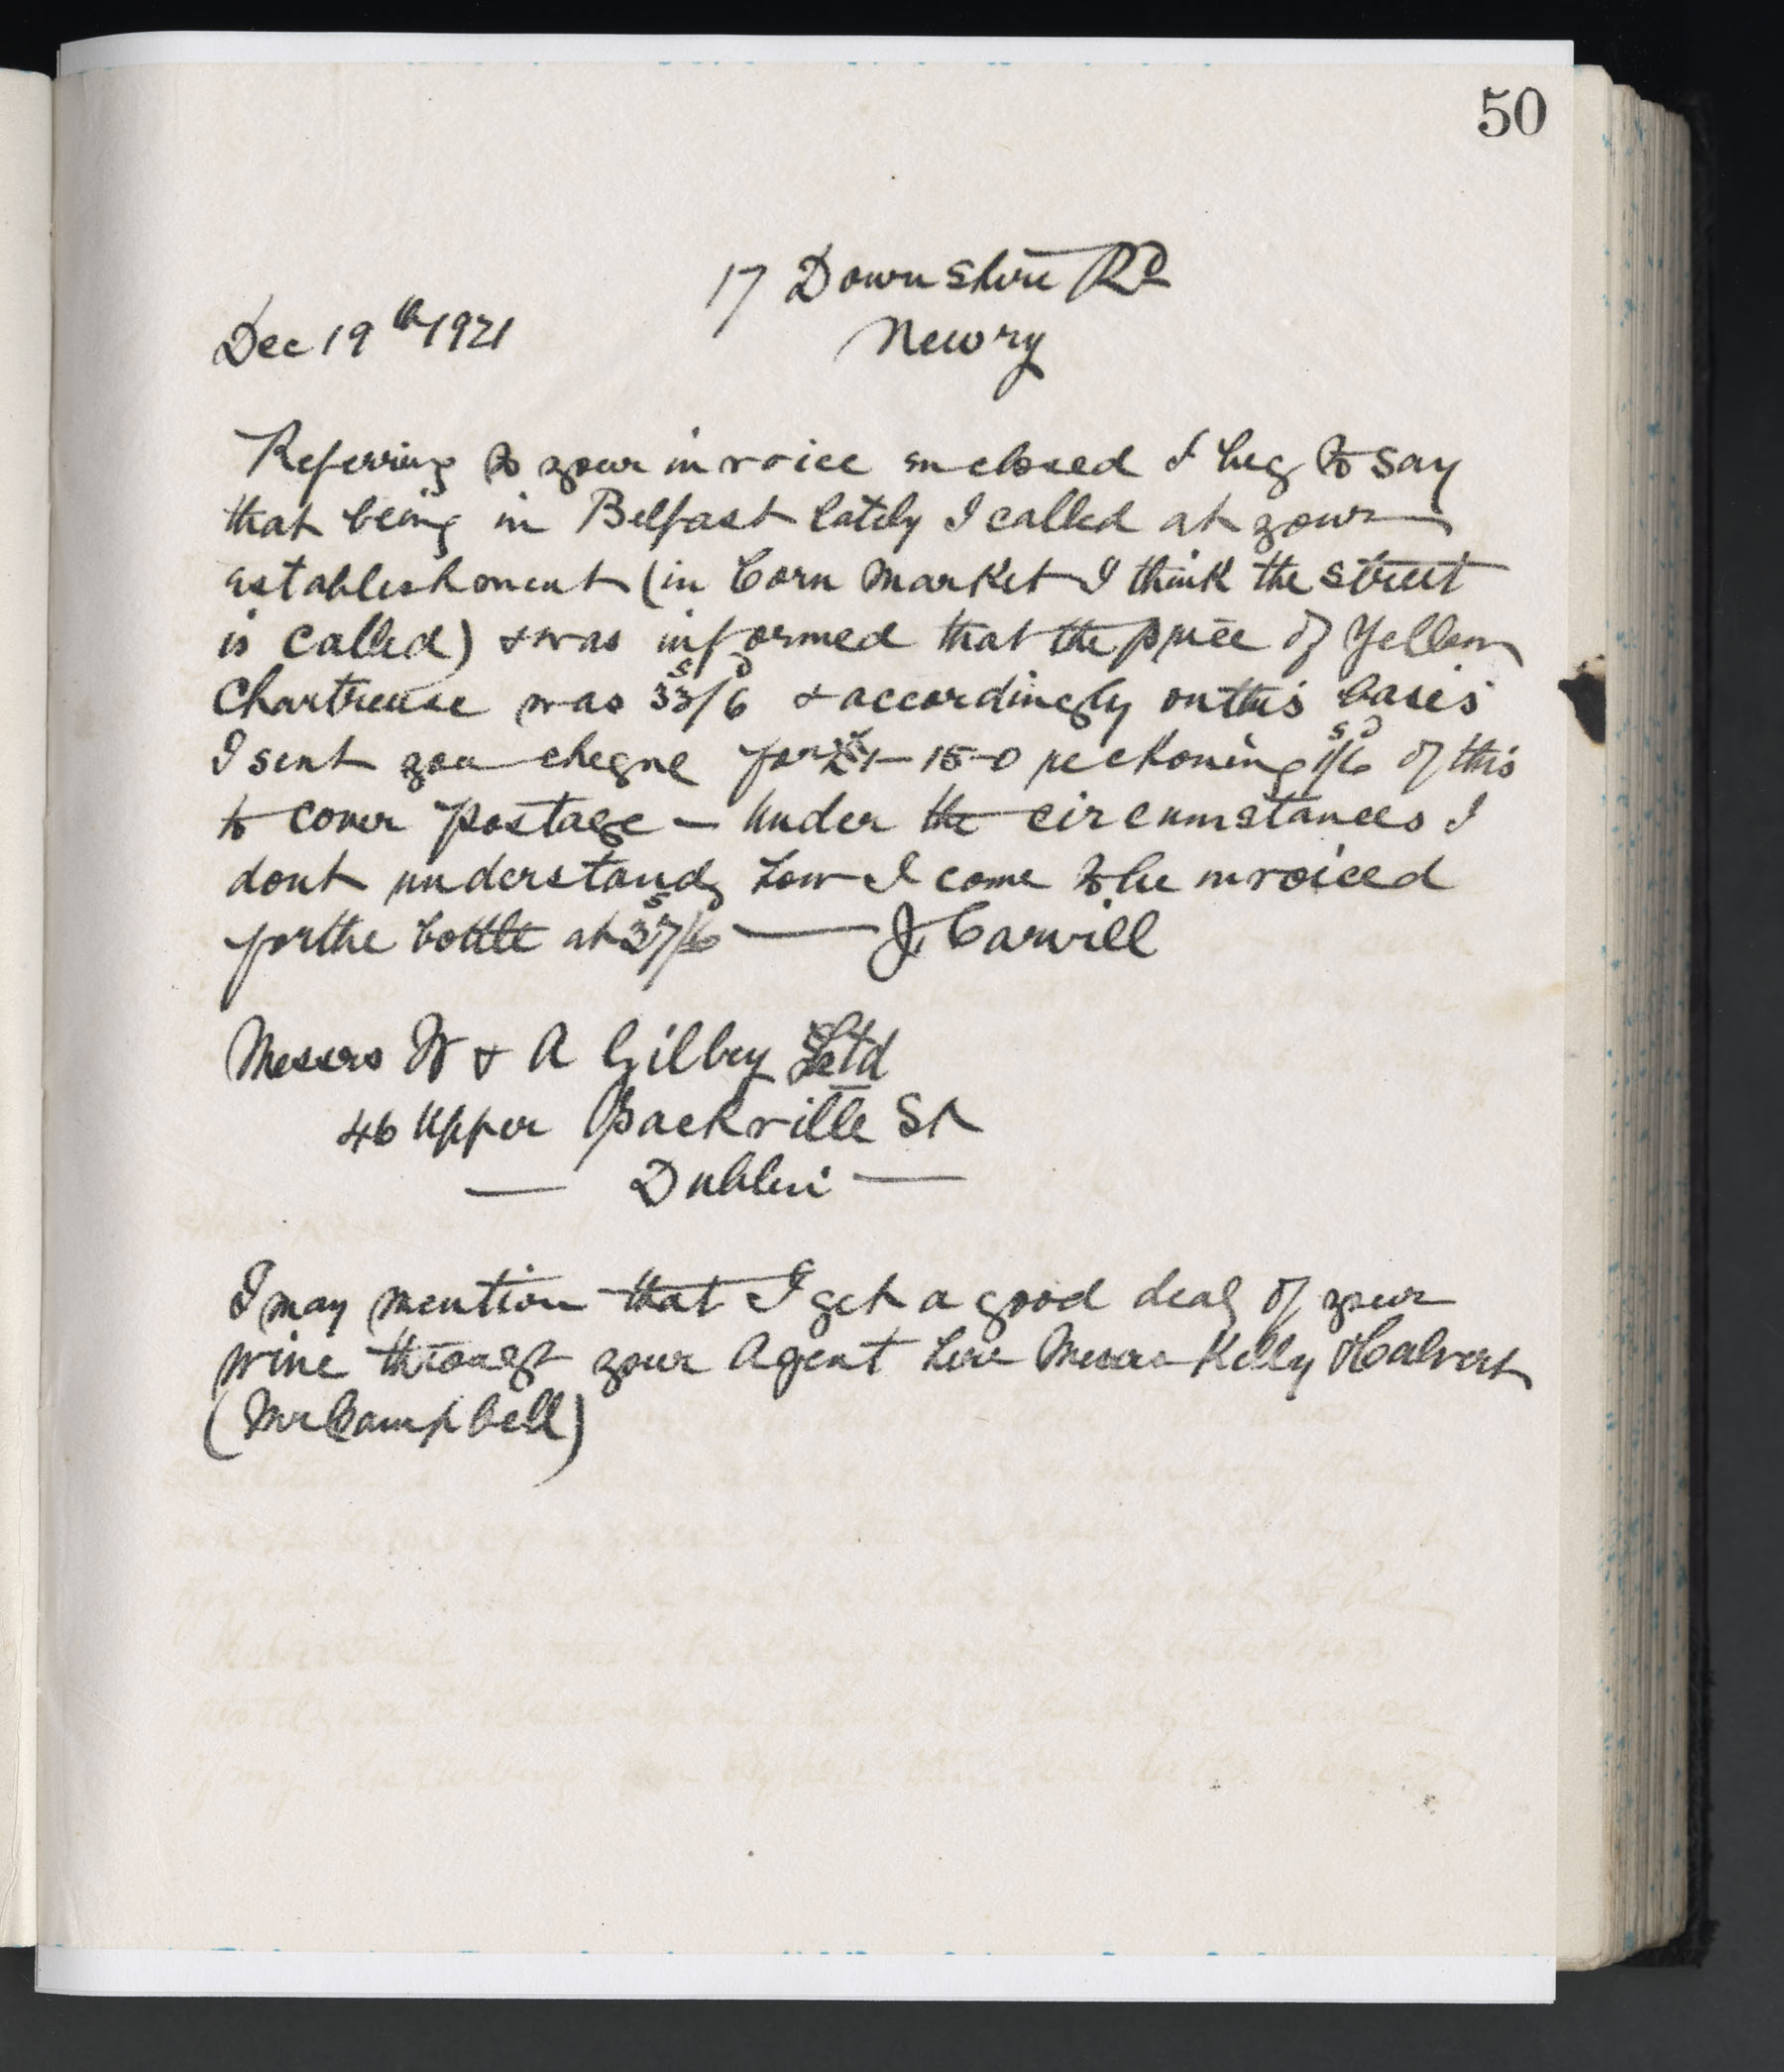 50
17 Downshire Rd
Dec 19th 1921
Newry
Referring to your invoice enclosed I beg to say
that being in Belfast lately I called at your
establishment (in Corn Market I think the street
is called) & was informed that the price of Yellow
Chartreuse was 33s/6d & accordingly on this basis
I sent you cheque for £1-15-0 reckoning 1s/6d of this
to cover postage — Under the circumstances I
dont understand how I come to be invoiced
for the bottle at 37s/6 — J Carvill
Messrs W & A Gilbey Ltd
46 Upper Sackville St
— Dublin —
I may mention that I get a good deal of your
wine through your Agent here Messrs Kelly
(Mr Campbell)